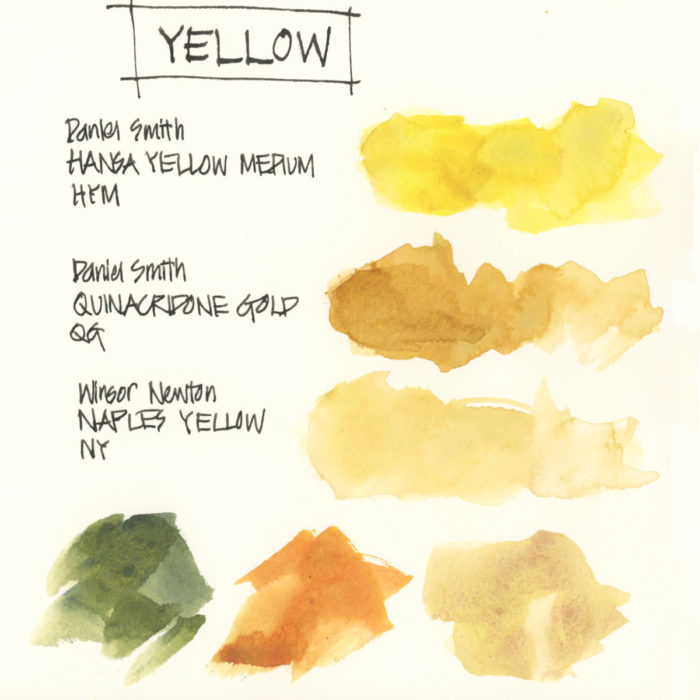 YELLOW
Daniel Smith
HANSA YELLOW MEDIUM
HYM
Daniel Smith
QUINACRIDONE GOLD
QG
Winsor Newton
NAPLES YELLOW
NY